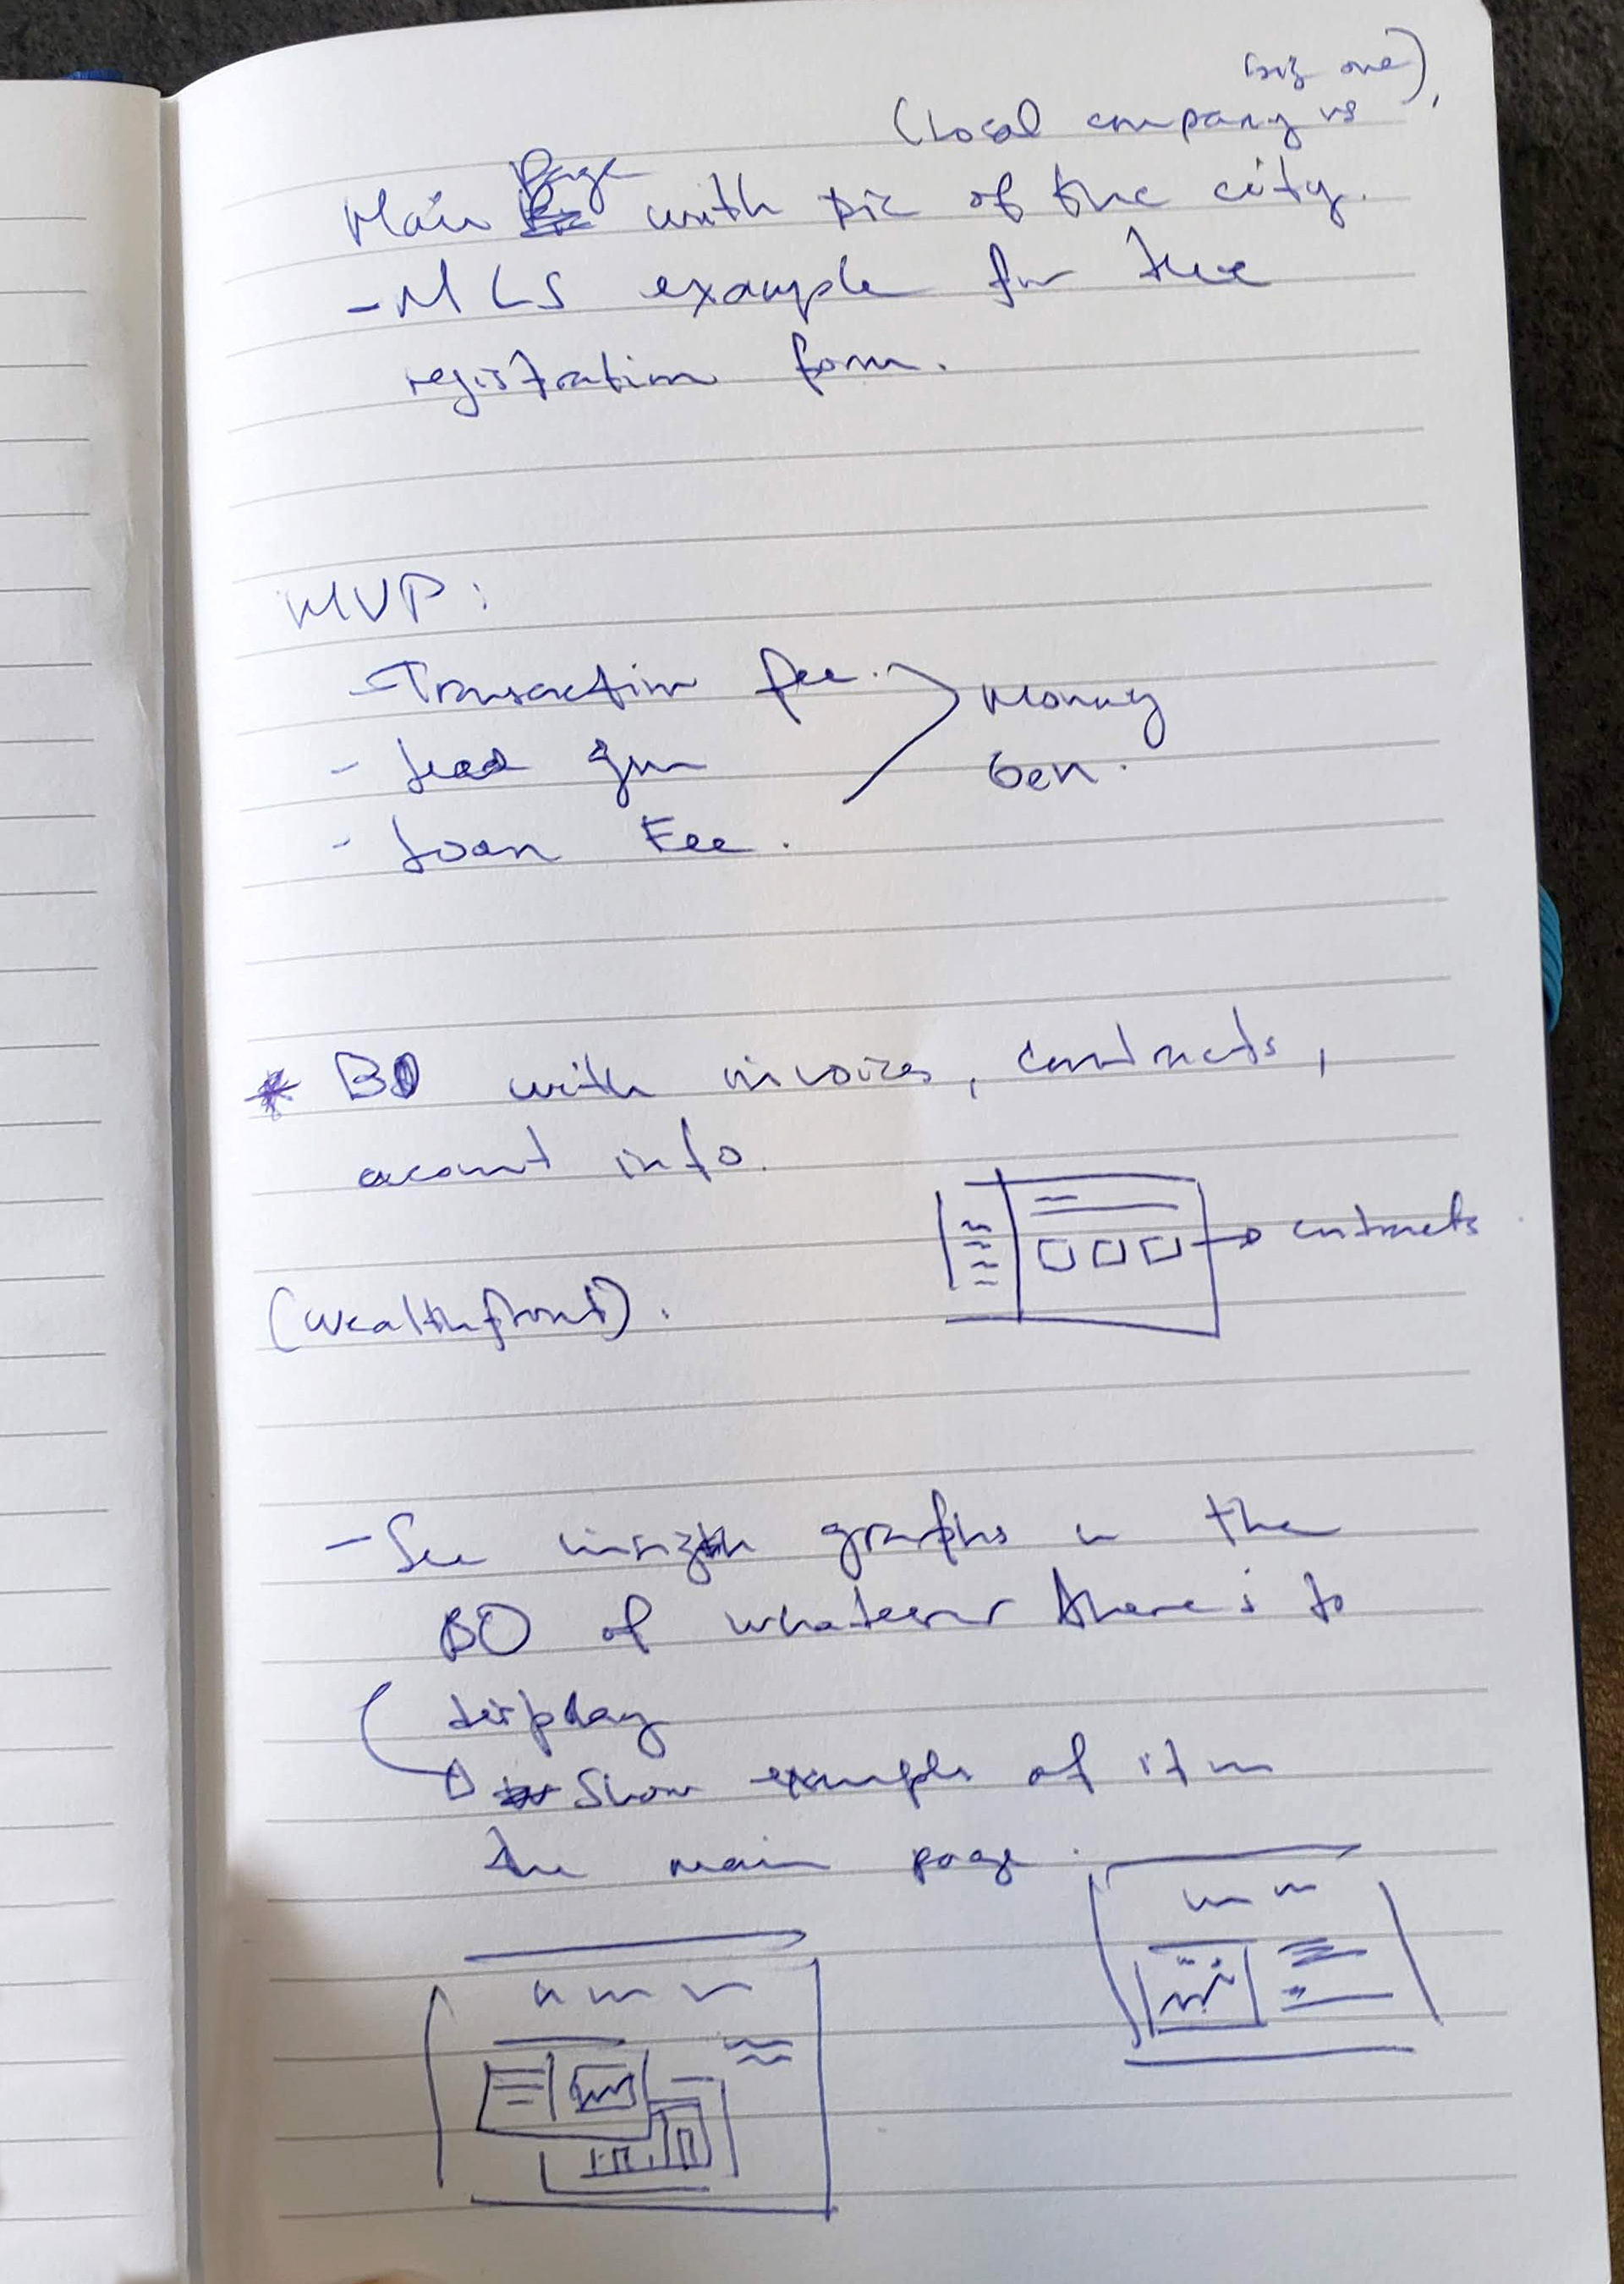 big one),
(Local company vs
Main Page with pic of the city.
- MLS example for the
registration form.
MVP:
- Transaction fee.
- Lead gen
- Loan Fee.
Money
Gen.
* BO with invoices, contracts,
account info.
→ contracts
(Wealthfront).
- See graphs in the
BO of whatever there is to
display
→ Show example of it in
the main page.